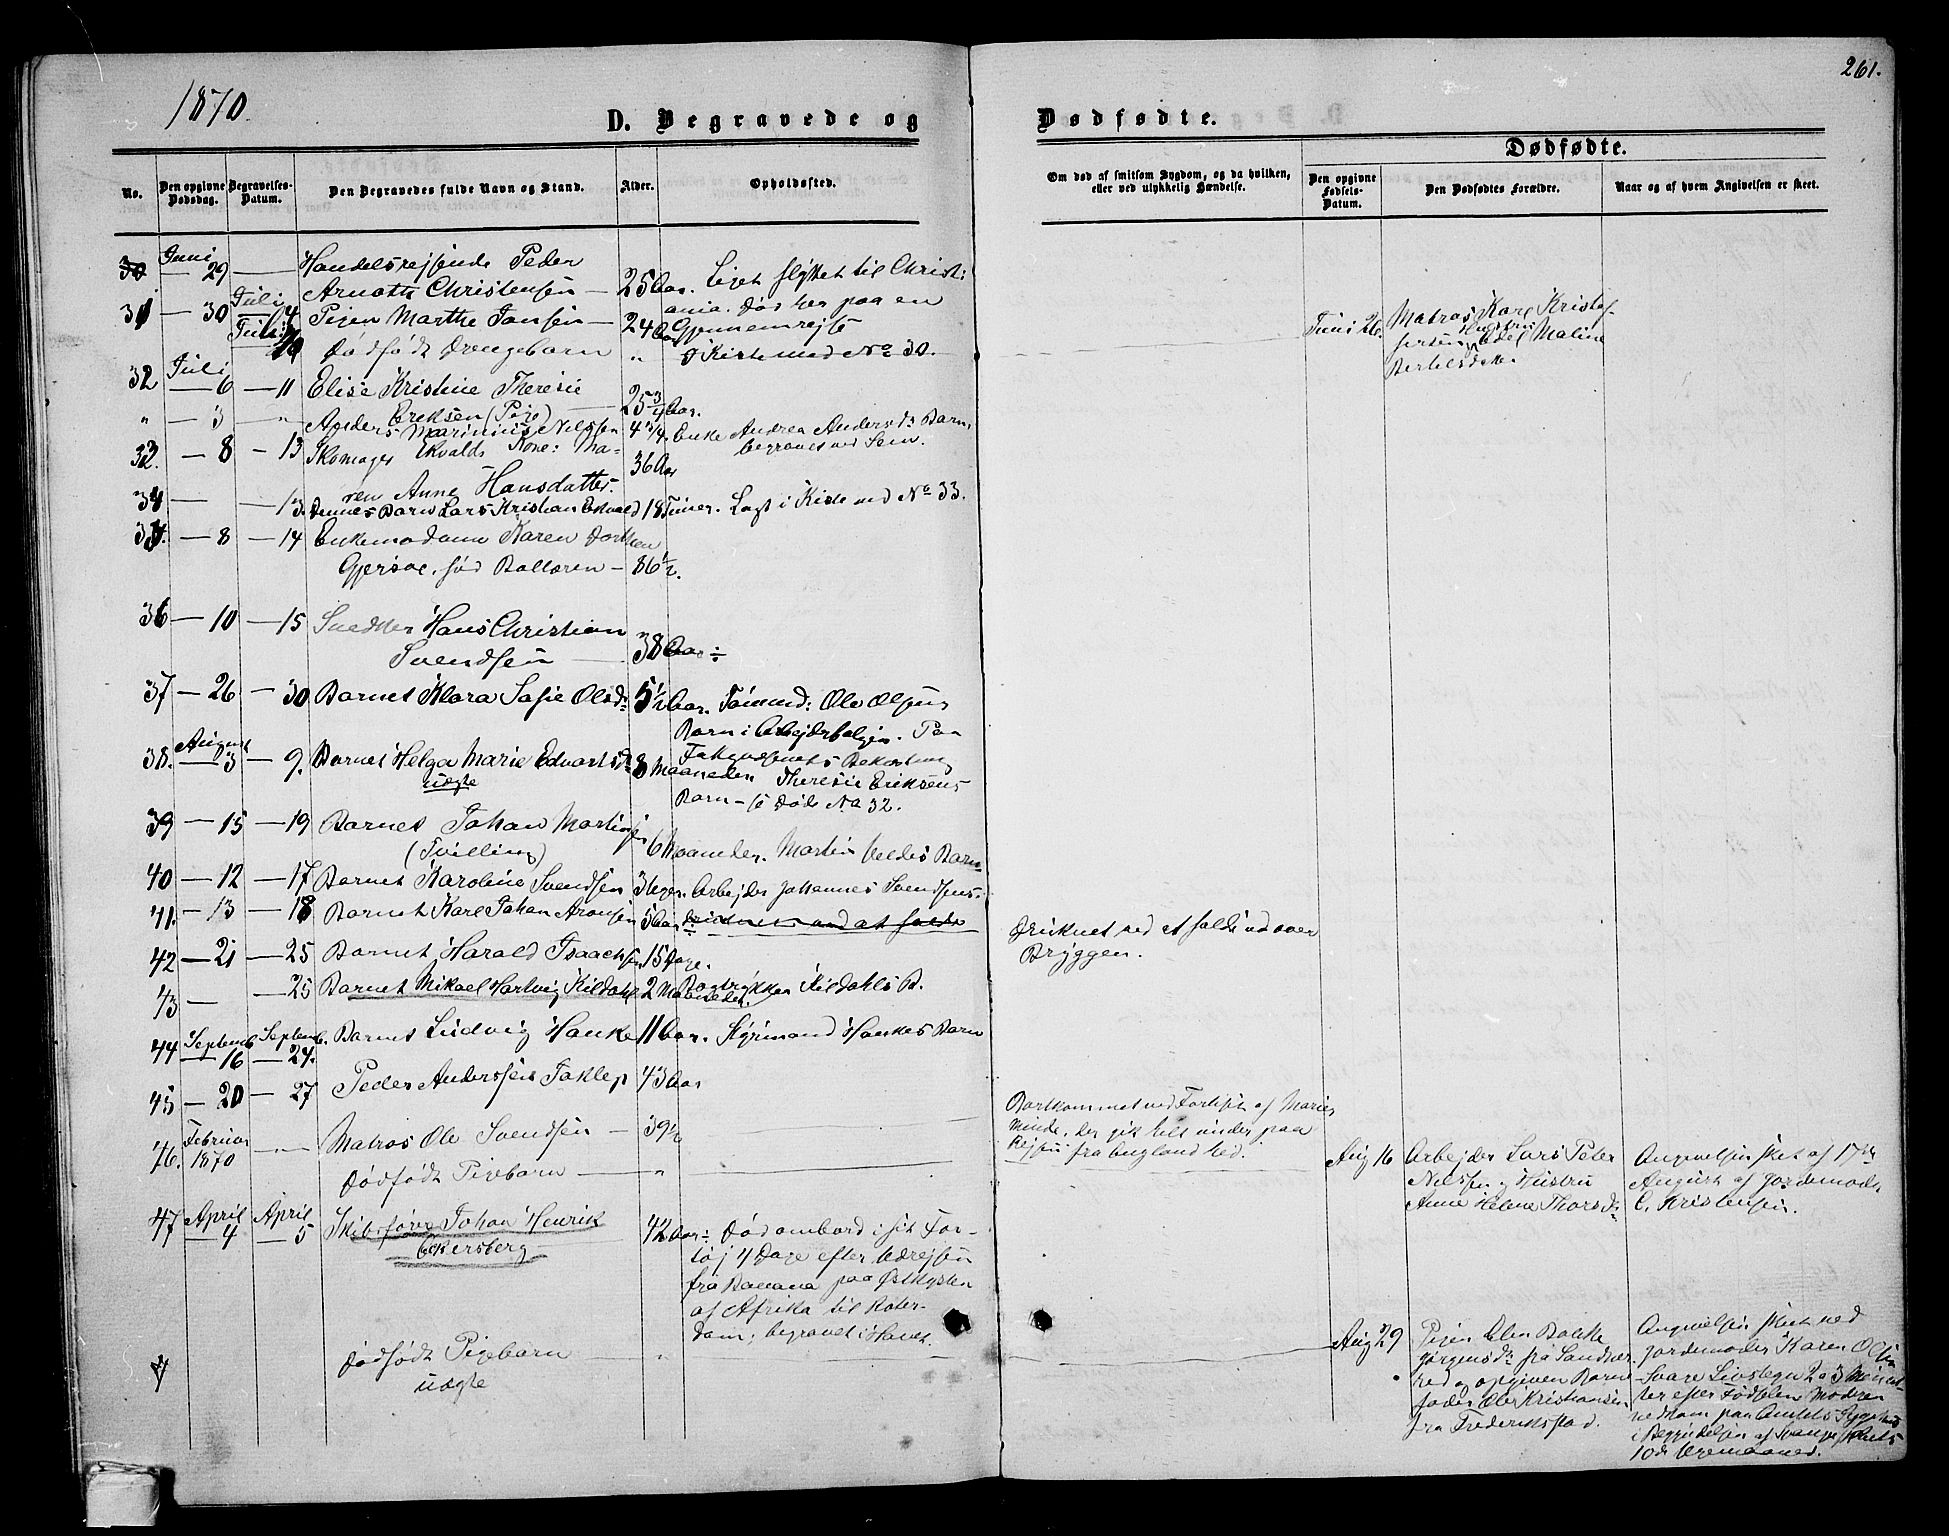 1870.
261.
D. Begravede og
Dødfødte.
Dødfødte.
No.
Den opgivne Dødsdag.
Begravelses-Datum.
Den Begravedes fulde Navn og Stand.
Alder.
Opholdssted.
Om død af smitsom Sygdom, og da hvilken, eller ved ulykkelig Hændelse.
Den opgivne Fødsels-Datum.
Den Dødfødtes Forældre.
Naar og af hvem Angivelsen er skeet.
30 Juni 29 — Handelsrejsende Peder
Christensen — 25 Aar. Liget flyttet til Christi-
ania. Død her paa en
Gjennemrejse
31 — 30 Juli Pigen Marthe Jansen — 24 Aar
Juli Dødfødt Drengebarn " I Kiste med No 30.
Juni 26. Matros Karl Kristof-
fersen Hustru Edel Malin
32 Juli 6 — 11 Elise Kristine Theresie
Eriksen (Pige) — 25 3/4 Aar.
" — 3 — " Anders Marinius Nilssen 4 3/4. Enke Andrea Andersd: Barn,
begravet ved Sem.
— 8 — 13 Skomager Ekvalds Kone: Ma-
ren Anne Hansdatter. 36 Aar
34 — — 13. Dennes Barn Lars Kristian Ekvald 18 Timer. Lagt i Kiste med No 33.
— 8 — 14 Enkemadam Karen Dorthea
født — 86 1/2.
36 — 10 — 15 Snedker Hans Christian
Svendsen — 38 Aar
37 — 26 — 30 Barnet Klara Sofie Olsd: 5 1/2 Aar. Tømmd: Ole Olsens
Barn i Arbejderboligen. Paa
Bekostning
38. August 3 — 9. Barnet Helga Marie Edvartsd: 8 Maaneder Theresie Eriksens
uægte
Barn — se Døde No 32.
39 — 15 — 19 Barnet Johan Martinsen
(Tvilling) 6 Maaneder. Martin Veldes Barn
40 — 12 — 17 Barnet Karoline Svendsen 3 Uger. Arbejder Johannes Svendsens
41. — 13 — 18 Barnet Karl Johan Aronsen 5 Aar.
Druknet ved at falde ud over
Bryggen.
42 — 21 — 25 Barnet Harald Isaachsen 15 Dage.
43 — — 25 Barnet Mikael Hartvig Kildahl 2 Maaneder. Bogtrykker Kildahls B.
44 Septemb 16 Septemb. 24. Barnet Ludvig Hanke 11 Aar. Styrmand Hankes Barn
45 — 20 — 27 Peder Anderssen Taklep 43 Aar
46. Februar 1870 — " — Matros Ole Svendsen — 39 1/2
Bortkommet ved Forliset af Maries
Minde, der gik helt under paa
Rejsen fra England hed.
Dødfødt Pigebarn — "
Aug 16 Arbejder Lars Peter
Nilssen og Hustru
Anne Helene Thorsd:
Angivelsen sket af 17de
August af Jordemoder
C. Kristensen.
47 April 4 April 5 Skibsfører Johan Henrik
Eckersberg
42 Aar: Død ombord i sit Far-
tøj 4 Dage efter Udrejsen
fra Banana paa Østkysten
af Afrika til Roter-
dam; begravet i Havet.
Dødfødt Pigebarn — "
uægte
Aug 29 Pigen Elen Bakke
Jørgensd: fra Sandhær-
red og opgiven Barne-
fader Ole Kristiansen
fra Frederikstad.
Angivelsen sket ved
Jordemoder Karen Olsen
Svare Livstegn 2 a 3 Minut-
ter efter Fødselen Modren
nedkom paa Amtets Sygehus
i Begyndelsen af Svangerskabets
10de Ugemaaned.